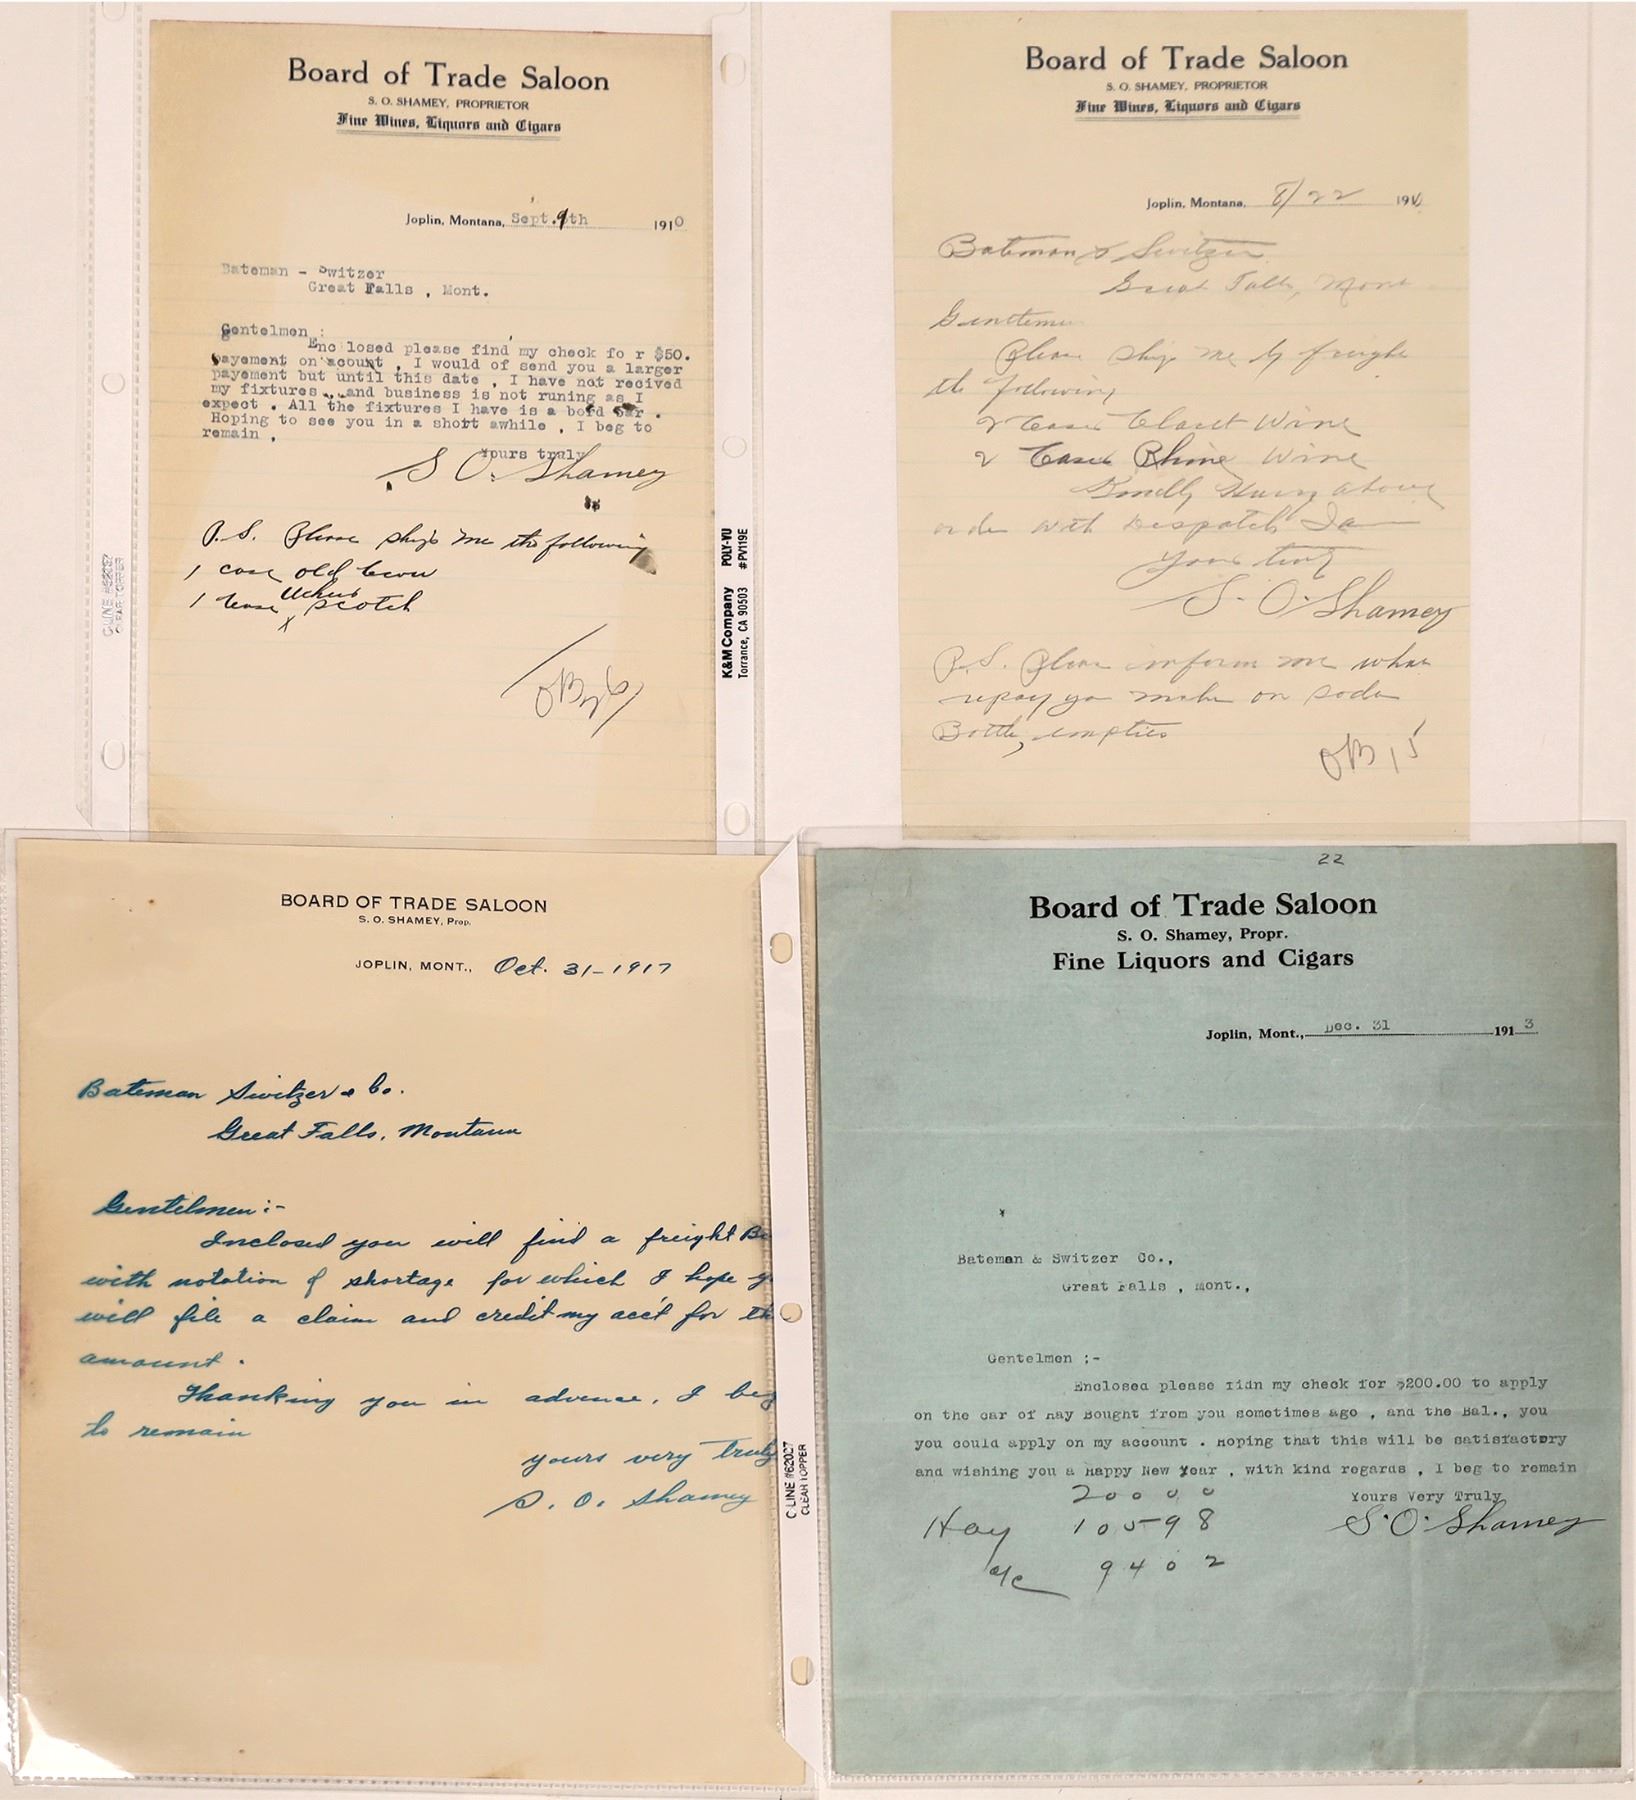 Board of Trade Saloon
S. O. SHAMEY, PROPRIETOR
Fine Wines, Liquors and Cigars
Joplin, Montana, Sept. 9th 1910
Bateman - Switzer
Great Falls , Mont.
Gentelmen :
Enc losed please find my check fo r $50.
payement on acount , I would of send you a larger
payement but until this date , I have not recived
my fixtures , and business is not runing as I
expect . All the fixtures I have is a bord bar .
Hoping to see you in a short awhile , I beg to
remain ,
Yours truly
S. O. Shamey
P.S. Please ship me the following
1 case old Crow
Ushers
1 Case scotch
x
K&M Company POLY-VU
Torrance, CA 90503 #PV119E
C-LINE #62027
CLEAR TOPPER
Board of Trade Saloon
S. O. SHAMEY, PROPRIETOR
Fine Wines, Liquors and Cigars
Joplin, Montana, 8/22 191
Bateman & Switzer
Great Falls, Mont
Gentlemen
Please ship me by freight
the following
2 Cases Claret Wine
2 Cases Rhine Wine
Kindly Hurry above
order with Dispatch I am
Yours truly
S. O. Shamey
P.S. Please inform me what
repay you make on soda
Bottle, empties
OB 15
BOARD OF TRADE SALOON
S. O. SHAMEY, Prop.
JOPLIN, MONT., Oct. 31-1917
Bateman Switzer & Co.
Great Falls, Montana
Gentelmen :-
Inclosed you will find a freight B
with notation of shortage for which I hope y
will file a claim and credit my acc't for th
amount .
Thanking you in advence, I beg
to remain
yours very truly
S. O. Shamey
C-LINE #62027
CLEAR TOPPER
22
Board of Trade Saloon
S. O. Shamey, Propr.
Fine Liquors and Cigars
Joplin, Mont., Dec. 31 1913
Bateman & Switzer Co.,
Great Falls , Mont.,
Gentelmen ;-
Enclosed please fidn my check for $200.00 to apply
on the car of Hay Bought from you sometimes ago , and the Bal., you
you could apply on my account . Hoping that this will be satisfactory
and wishing you a Happy New Year , with kind regards , I beg to remain
Yours Very Truly
200 00
Hay 105 98
S. O. Shamey
a/c 94 02